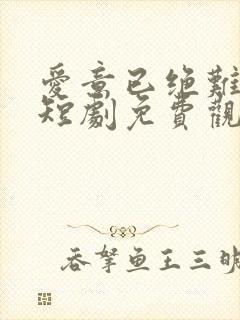 愛意已绝難
短劇免費觀
吞拏鱼王三明